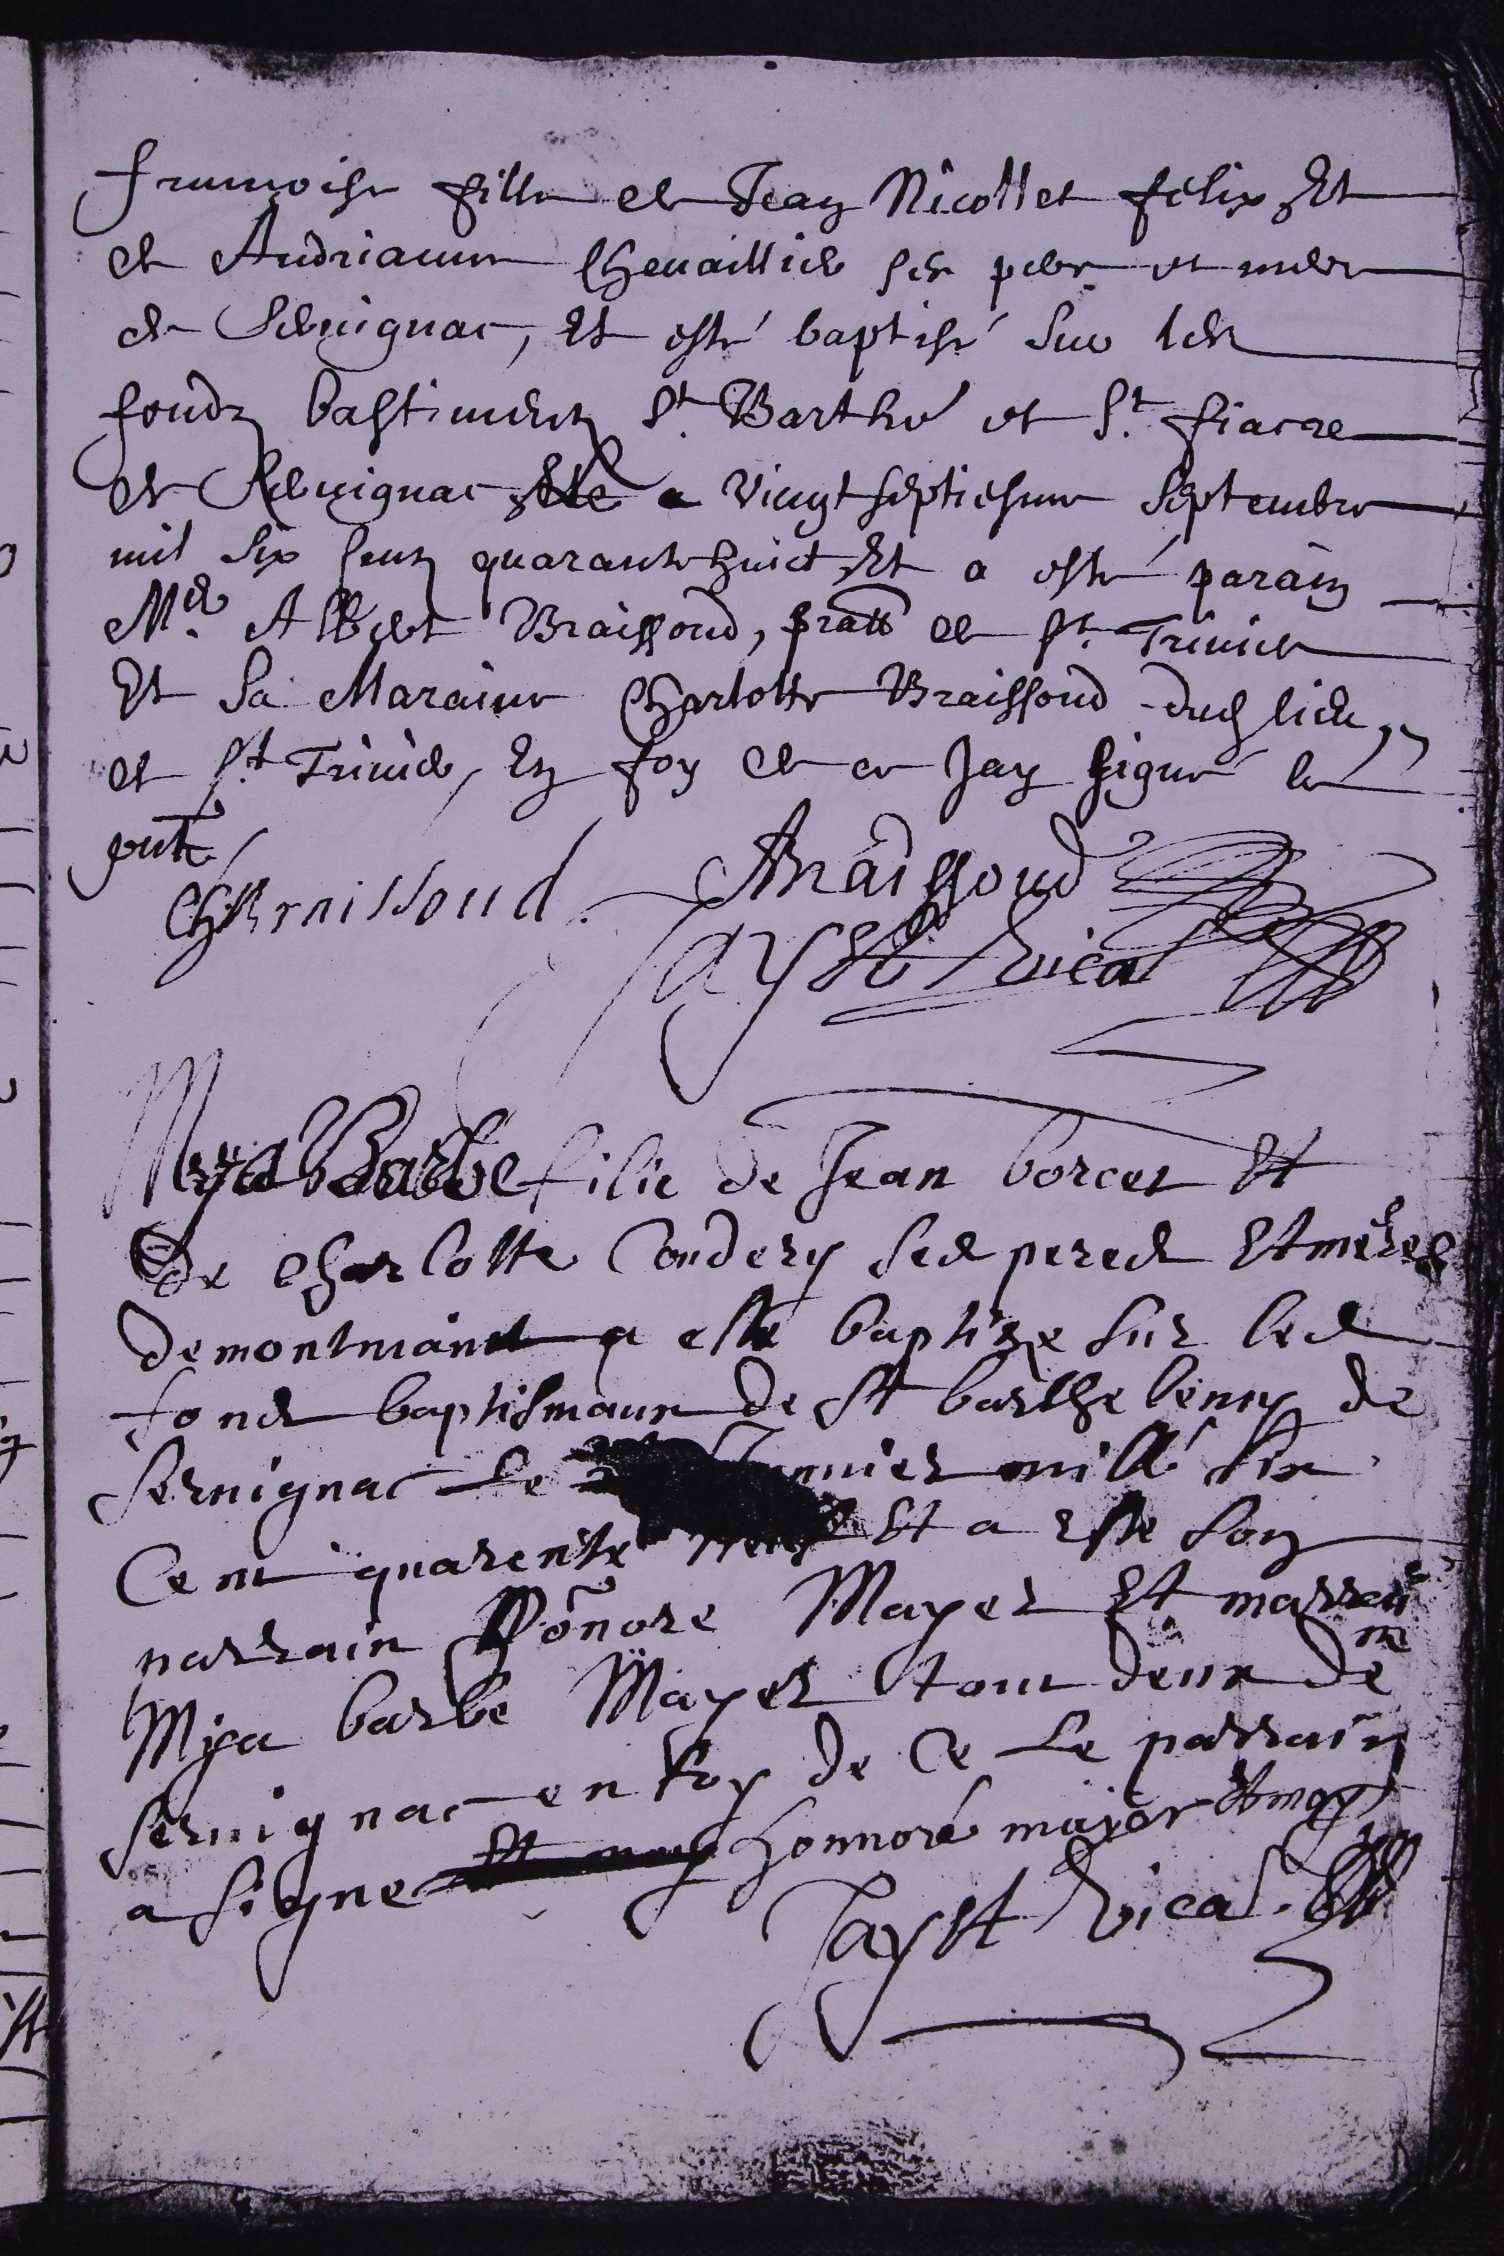 francoise fille de Jean Nicollet felix Et
de Andrianne Chevaillier ses pere et mere
de Servignac, Et esté baptisé sur les
fondz bastimentz St. Barthé et St. fiacre
de Servignac a vingt septiesme septembre
mil six Centz quarante huict Et a esté parain
Mre. Albert Braissoud, pratt de St. Trivier
Et Sa Maraine Charlotte Braissoud dud lieu
de St Trivier, En foy de ce Jay signé le
pnt
Ch Braissoud. ABraissoud
Jayet vica
Mya Barbe filie de Jean borcet Et
De Charlotte Coudery ses peres Et meres
de montmain a esté baptize sur les
fonds baptismaux de St barthelemy de
servignac Le Janvier mille six
Cent quarente neuf Et a este son
parrain Honnore Mayer Et marrai
ne
Mya barbe Mayer tout deux de
servignac en foy de Ce Le parrain
a signe Et moy honnoré majer Et moy
Jayet vica.